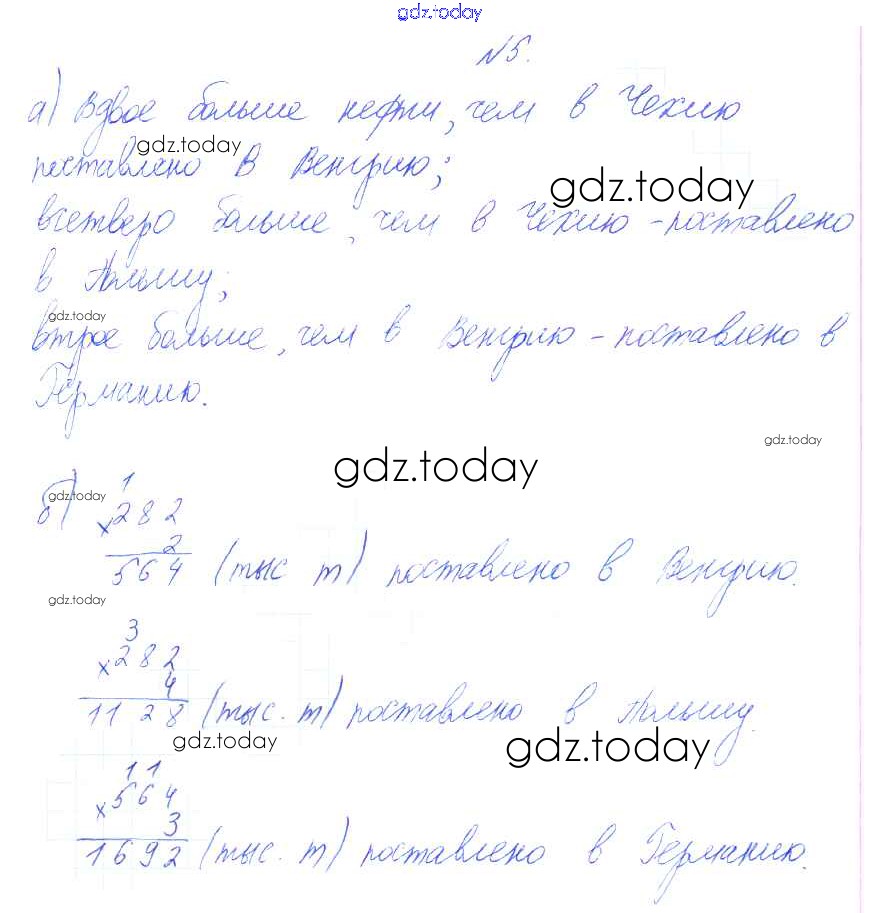 gdz.today
№5.
а) Вдвое больше нефти, чем в Чехию
gdz.today
поставлено в Венгрию;
gdz.today
вчетверо больше, чем в Чехию - поставлено
в Польшу;
gdz.today
втрое больше, чем в Венгрию - поставлено в
Германию.
gdz.today
gdz.today
б) 1
gdz.today
×282
2
564 (тыс т) поставлено в Венгрию.
gdz.today
3
×282
4
1128 (тыс. т) поставлено в Польшу.
gdz.today
gdz.today
11
×564
3
1692 (тыс. т) поставлено в Германию.